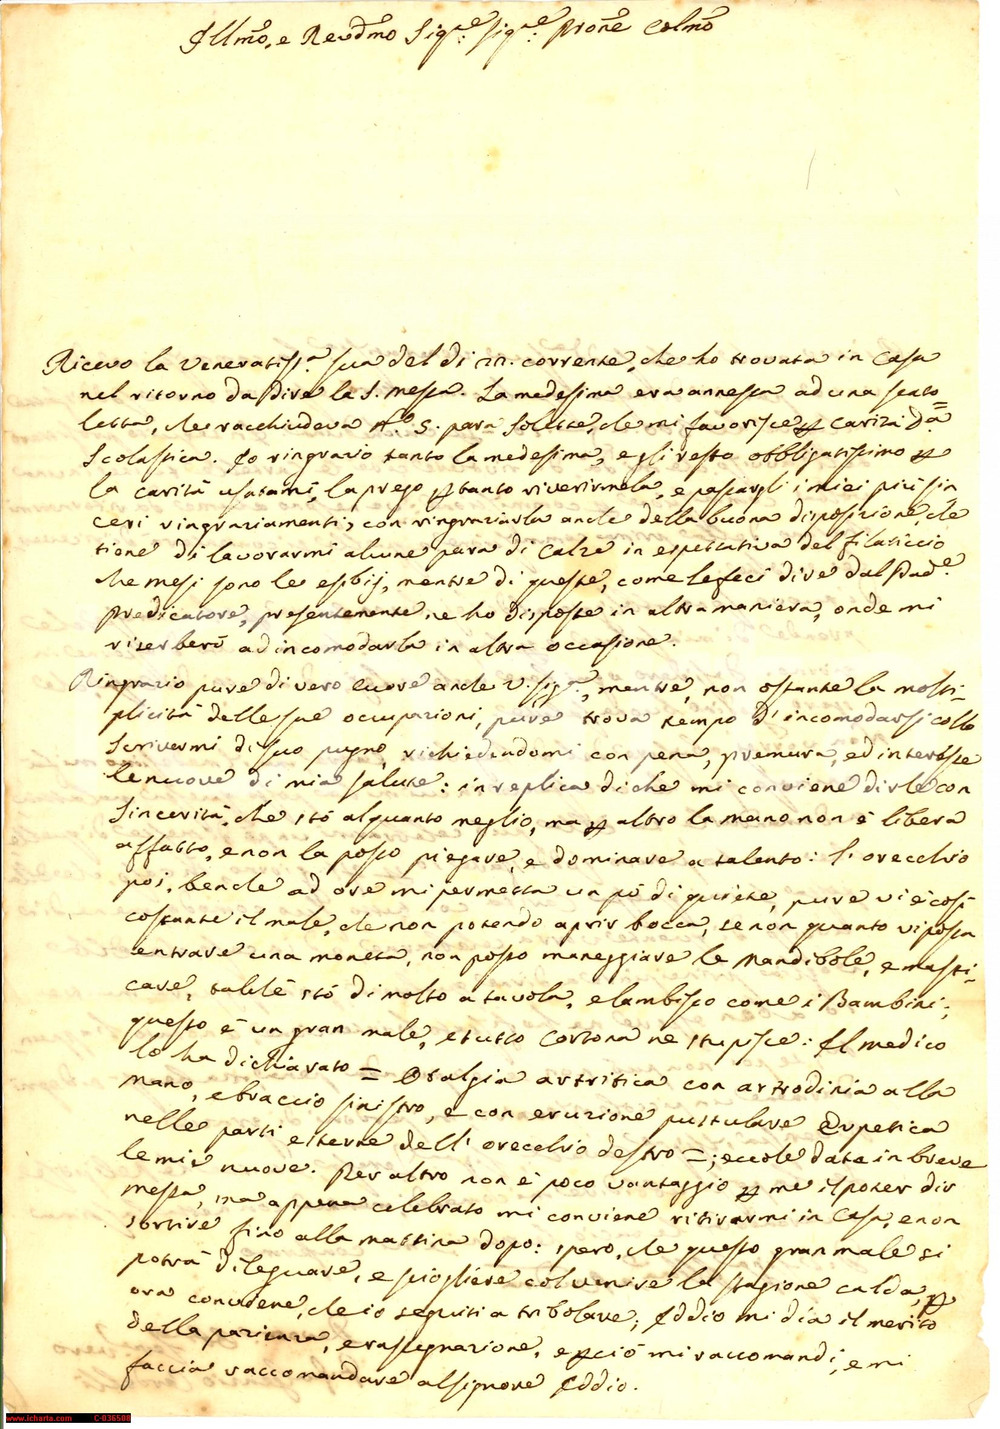 Illmo, e Revdmo Sigre: sigre: Prone Colmo
Ricevo la Veneratissa sua del di 22. corrente, che ho trovata in Casa
nel ritorno da dire la S. messa. La medesima era annessa ad una scato=
letta, che racchiudeva No. 5. para Solette, che mi favorisce p carità Da
Scolastica. Io ringrazio tanto la medesima, e gli resto obbligatissimo p
la carità usatami, la prego p tanto riverirmela, e passargli i miei più sin=
ceri ringraziamenti, con ringraziarla anche della buona disposizione, che
tiene di lavorarmi alcune para di Calze in espettativa del filaticcio
che mesi sono le esibij, mentre di queste, come le feci dire dal Pade
Predicatore, presentemente ne ho disposte in altra maniera, onde mi
riserberò ad incomodarla in altra occasione.
Ringrazio pure di vero cuore anche V. Siga, mentre, non ostante la molti=
plicità delle sue occupazioni, pure trova tempo d'incomodarsi collo
Scrivermi di suo pugno, richiedendomi con pena, premura, ed interesse
le nuove di mia salute: in replica di che mi conviene dirle con
Sincerità, che stò alquanto meglio, ma p altro la mano non è libera
affatto, e non la posso piegare, e dominare a talento: l'orecchio
poi, benche ad ore mi permetta un pò di quiete, pure vi è così
costante il male, che non potendo aprir bocca, se non quanto vi possa
entrare una moneta, non posso maneggiare le Mandibole, e masti=
care, talchè stò di molto a tavola, e lambisco come i Bambini;
questo è un gran male, e tutto Cortona ne stupisce: Il medico
lo ha dichiarato = Otalgia artritica con artrodinia alla
mano, e braccio sinistro, e con eruzione pustulare Erpetica
nelle parti esterne dell'orecchio destro =; eccole date in breve
le mie nuove. Per altro non è poco vantaggio p me il poter dir
messa, ma appena celebrato mi conviene ritirarmi in Casa, e non
sortire fino alla mattina dopo: spero, che questo gran male si
potrà dileguare, e sciogliere col venire la stagione calda, p
ora conviene, che io seguiti a tribolare; Iddio mi dia il merito
della pazienza, e rassegnazione, e p ciò mi raccomandi, e mi
faccia raccomandare al signore Iddio.
www.icharta.com C-036508